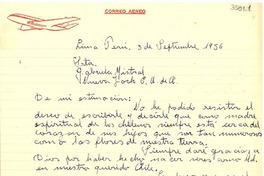 CORREO AEREO
Lima Perú, 3 de Septiembre 1956
Srta.
Gabriela Mistral
Nueva York E. U. de A.
De mi estimación:
No he podido resistir el
deseo de escribirle y decirle que como madre
espiritual de los chilenos siempre está cerca del
corazón de sus hijos que son tan numerosos
como las flores de nuestra tierra.
Siempre daré gracias a
Dios por haber hecho nacer seres como Ud.
en nuestro querido Chile.